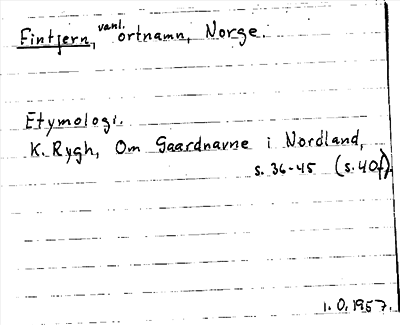 Fintjern, vanl. ortnamn, Norge.
Etymologi.
K. Rygh, Om Gaardnavne i Nordland,
s. 36-45 (s. 40f).
1.0.1957.